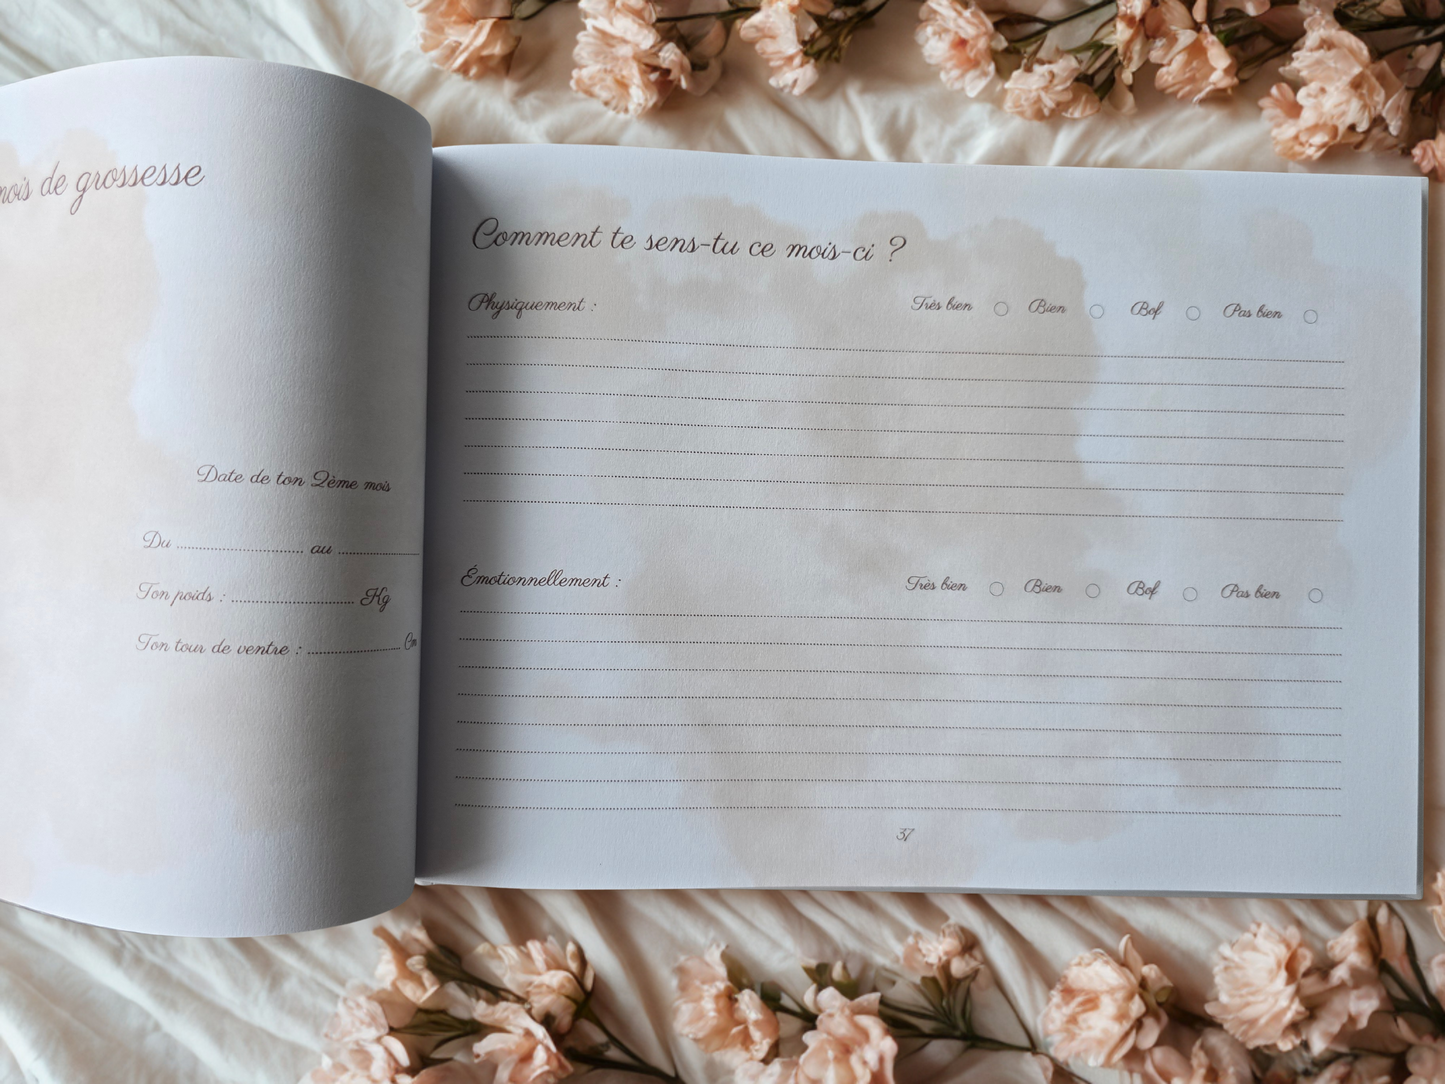 mois de grossesse
Date de ton 2ème mois
Du au
Ton poids : Kg
Ton tour de ventre :
Comment te sens-tu ce mois-ci ?
Physiquement : Très bien Bien Bof Pas bien
Émotionnellement : Très bien Bien Bof Pas bien
37